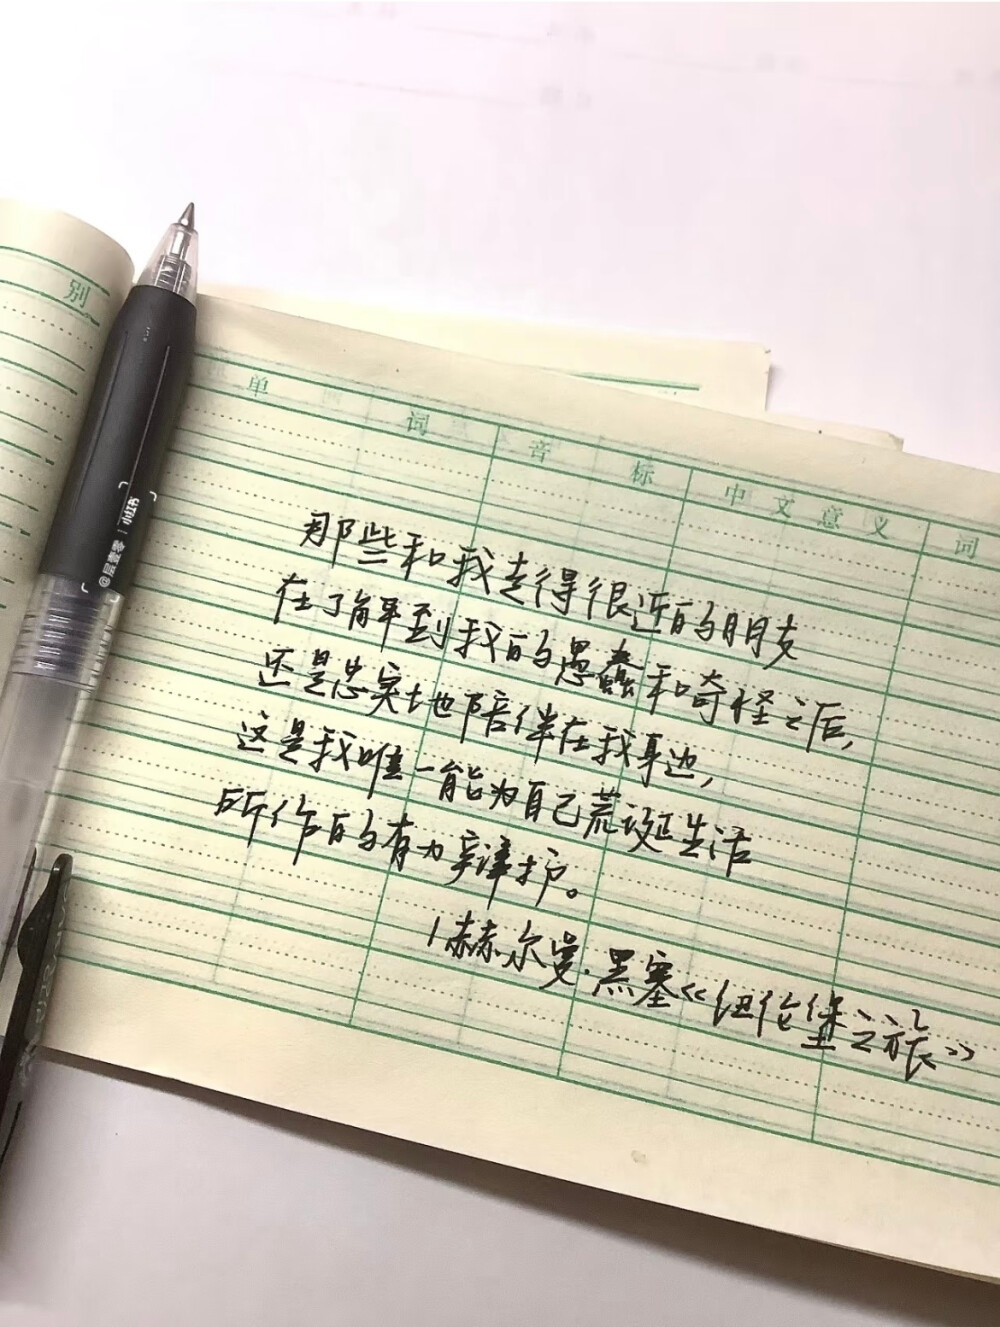 别
单 词 音 标 中 文 意 义 词
那些和我走得很近的朋友
在了解到我的愚蠢和奇怪之后,
还是忠实地陪伴在我身边,
这是我唯一能为自己荒诞生活
所作的有力辩护。
赫尔曼·黑塞《纽伦堡之旅》
小红书